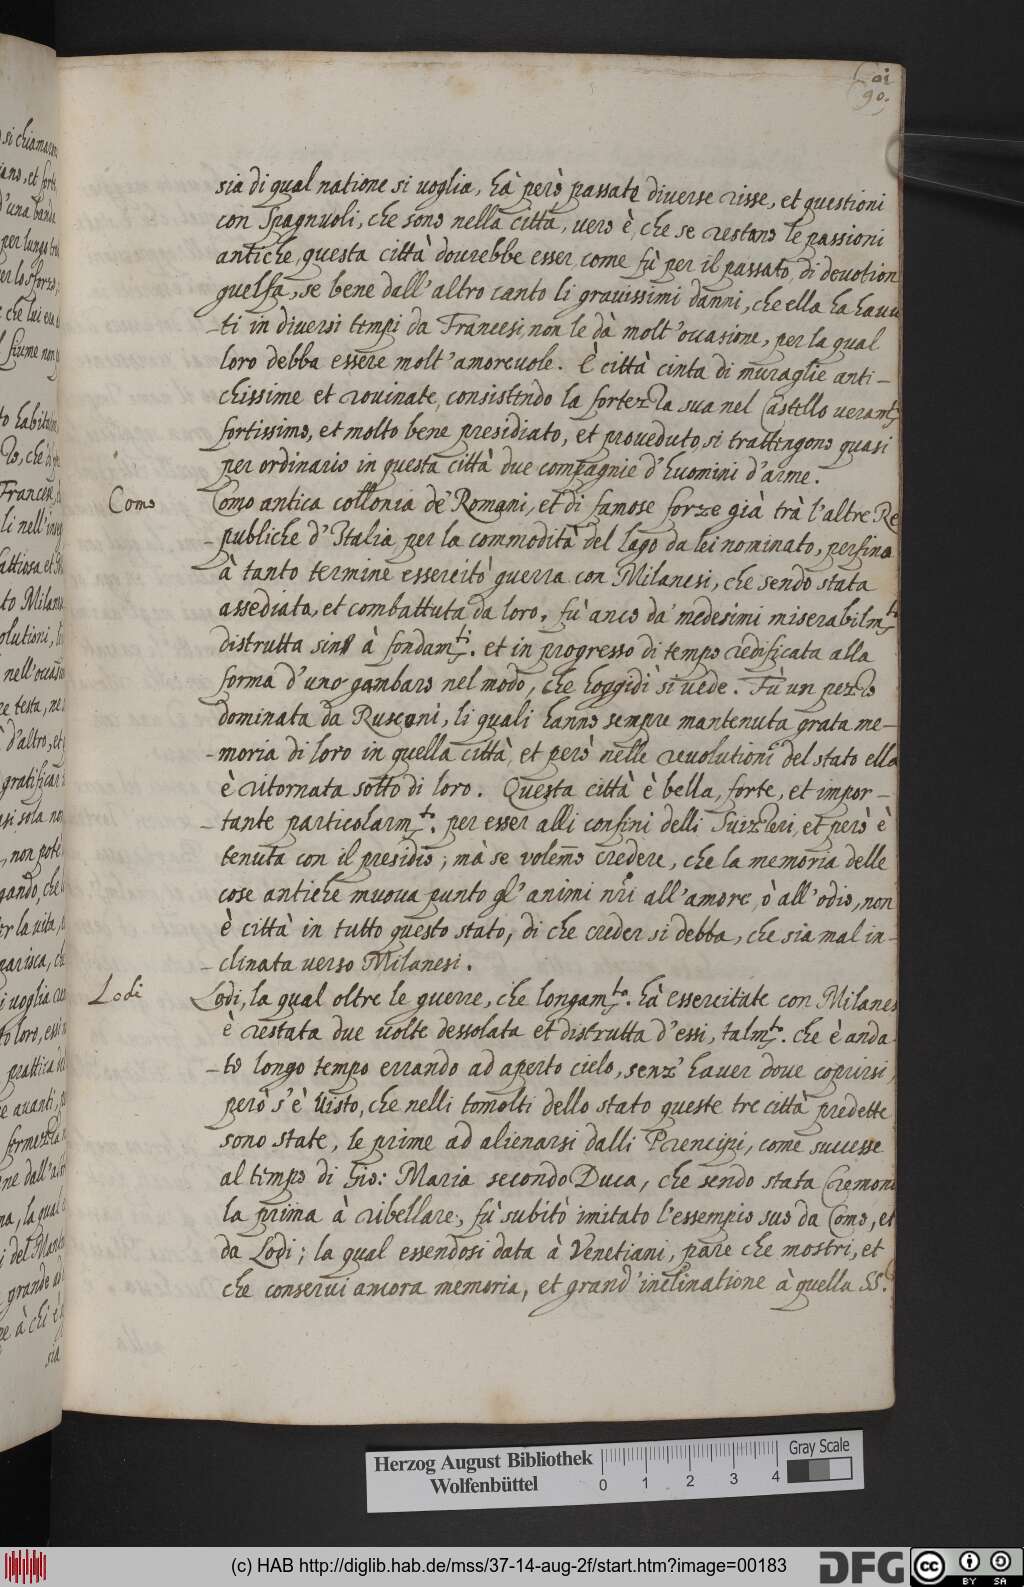 90.
sia di qual natione si uoglia, hà però passate diuerse risse, et questioni
con Spagnuoli, che sono nella città, uero è, che se restano le passioni
antiche, questa città dourebbe esser, come fù per il passato, di deuotion
guelfa, se bene dall'altro canto li grauissimi danni, che ella ha hauu
-ti in diuersi tempi da Francesi, non le dà molt'occasione, per la qual
loro debba essere molt'amoreuole. È città cinta di muraglie anti-
chissime et rouinate, consistendo la fortezza sua nel Castello veramte
fortissimo, et molto bene presidiato, et proueduto, si trattengono quasi
per ordinario in questa città due compagnie d'huomini d'arme.
Como
Como antica collonia de' Romani, et di famose forze già trà l'altre Re
-publiche d'Italia, per la commodità del lago da lei nominato, perfino
à tanto termine essercitò guerra con Milanesi, che sendo stata
assediata, et combattuta da loro, fù anco da' medesimi miserabilmte
distrutta sino à fondamti. et in progresso di tempo redificata alla
forma d'uno gambaro nel modo, che hoggidì si uede. Fù un pezzo
dominata da Rusconi, li quali hanno sempre mantenuta grata me-
-moria di loro in quella città, et però nelle reuolutioni del stato ella
è ritornata sotto di loro. Questa città è bella, forte, et impor-
-tante particolarmte. per esser alli confini delli Suizzeri, et però è
tenuta con il presidio; mà se volemo credere, che la memoria delle
cose antiche muoua punto gl'animi nri all'amore, ò all'odio, non
è città in tutto questo stato, di che creder si debba, che sia mal in-
-clinata uerso Milanesi.
Lodi
Lodi, la qual oltre le guerre, che longamte. hà essercitate con Milanes
è restata due uolte dessolata et distrutta d'essi, talmte. che è anda-
-to longo tempo errando ad aperto cielo, senz'hauer doue coprirsi,
però s'è uisto, che nelli tomolti dello stato queste tre città predette
sono state, le prime ad alienarsi dalli Prencipi, come successe
al tempo di Gio: Maria secondo Duca, che sendo stata Cremona
la prima à ribellare, fù subitò imitato l'essempio suo da Como, et
da Lodi; la qual essendosi data à Venetiani, pare che mostri, et
che conserui ancora memoria, et grand'inclinatione à quella SS.
Herzog August Bibliothek
Wolfenbüttel
0 1 2 3 4
Gray Scale
(c) HAB http://diglib.hab.de/mss/37-14-aug-2f/start.htm?image=00183
DFG
cc BY SA